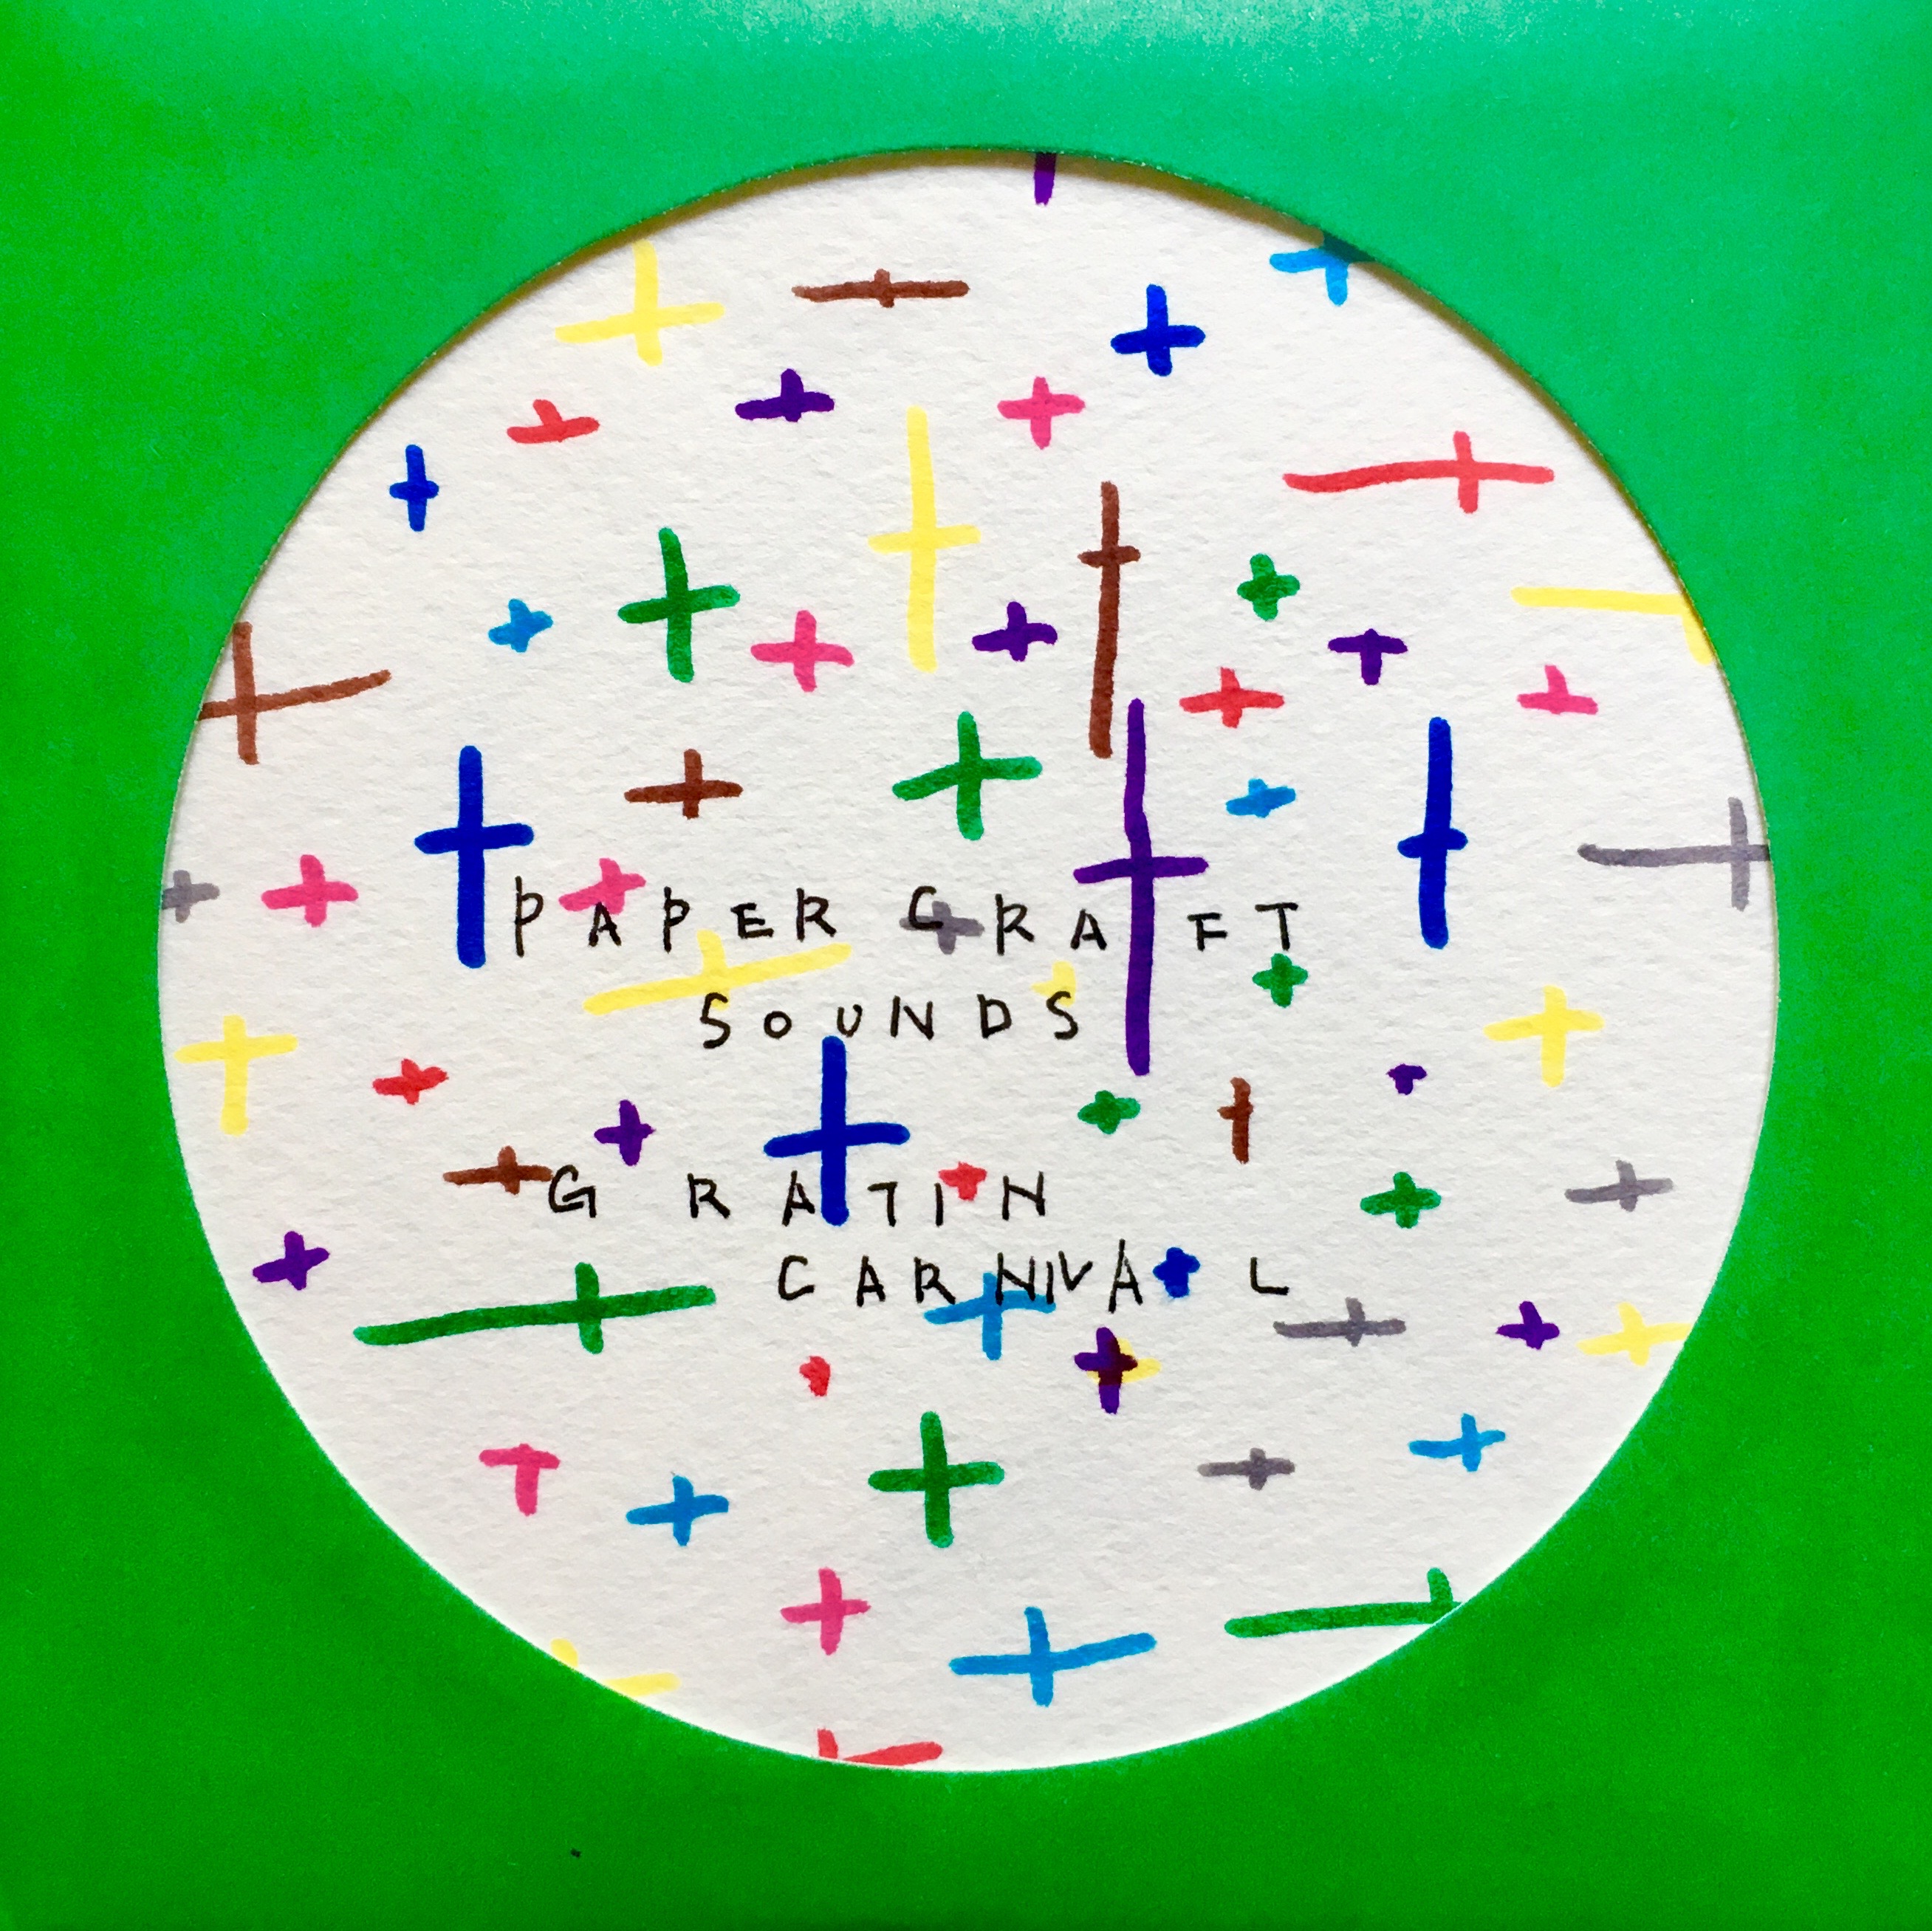 PAPER CRAFT
SOUNDS
GRATIN
CARNIVAL